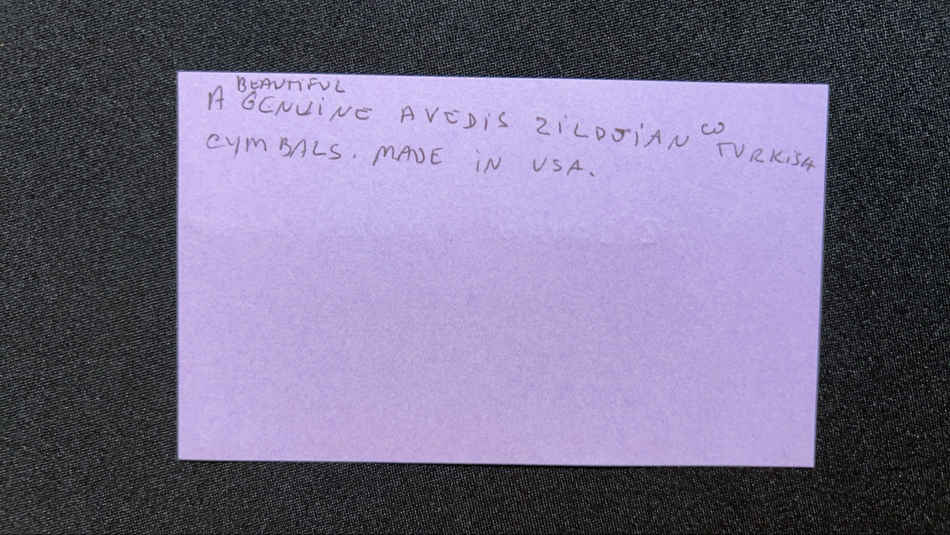 BEAUTIFUL
A GENUINE AVEDIS ZILDJIAN CO TURKISH
CYMBALS. MADE IN USA.